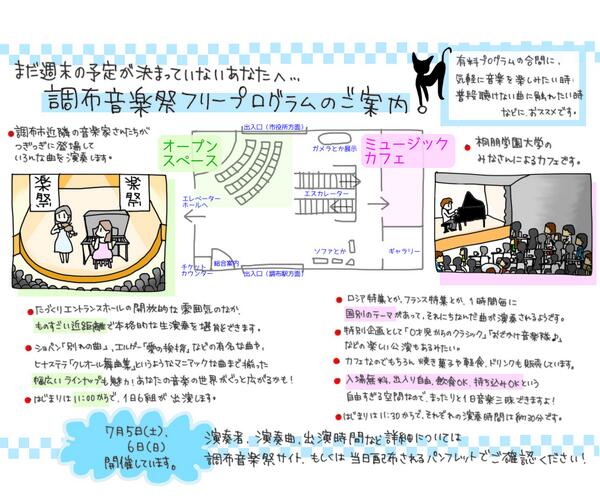 まだ週末の予定が決まっていないあなたへ…
調布音楽祭フリープログラムのご案内!
有料プログラムの合間に、
気軽に音楽を楽しみたい時、
普段聴けない曲に触れたい時
などに、おススメです。
調布市近隣の音楽家さんたちが
つぎつぎに登場して
いろんな曲を演奏します。
オープン
スペース
出入口(市役所方面)
ガメラとか展示
ミュージック
カフェ
桐朋学園大学の
みなさんによるカフェです。
楽祭
楽祭
エレベーター
ホールへ
エスカレーター
チケット
カウンター
総合案内
出入口(調布駅方面)
ソファとか
ギャラリー
たづくりエントランスホールの開放的な雰囲気のなか、
ものすごい近距離で本格的な生演奏を堪能できます。
ショパン「別れの曲」、エルガー「愛の挨拶」などの有名な曲や、
ヒナステラ「クレオール舞曲集」というようなマニアックな曲まで揃った
幅広いラインナップも魅力!あなたの音楽の世界がぐっと広がるかも!
はじまりは11:00からで、1日6組が出演します。
ロシア特集とか、フランス特集とか、1時間毎に
国別のテーマがあって、それにちなんだ曲が演奏されるようです。
特別企画として「0才児からのクラシック」「おでかけ音楽隊♪」
などの楽しい公演もあるみたい。
カフェなのでもちろん、焼き菓子や軽食、ドリンクも販売しています。
入場無料、出入り自由、飲食OK、持ち込みOKという
自由すぎる空間なので、まったりと1日音楽三昧できますよ!
はじまりは11:30からで、それぞれの演奏時間は約30分です。
7月5日(土)、
6日(日)
開催しています。
演奏者、演奏曲、出演時間など詳細については
調布音楽祭サイト、もしくは当日配布されるパンフレットでご確認ください!